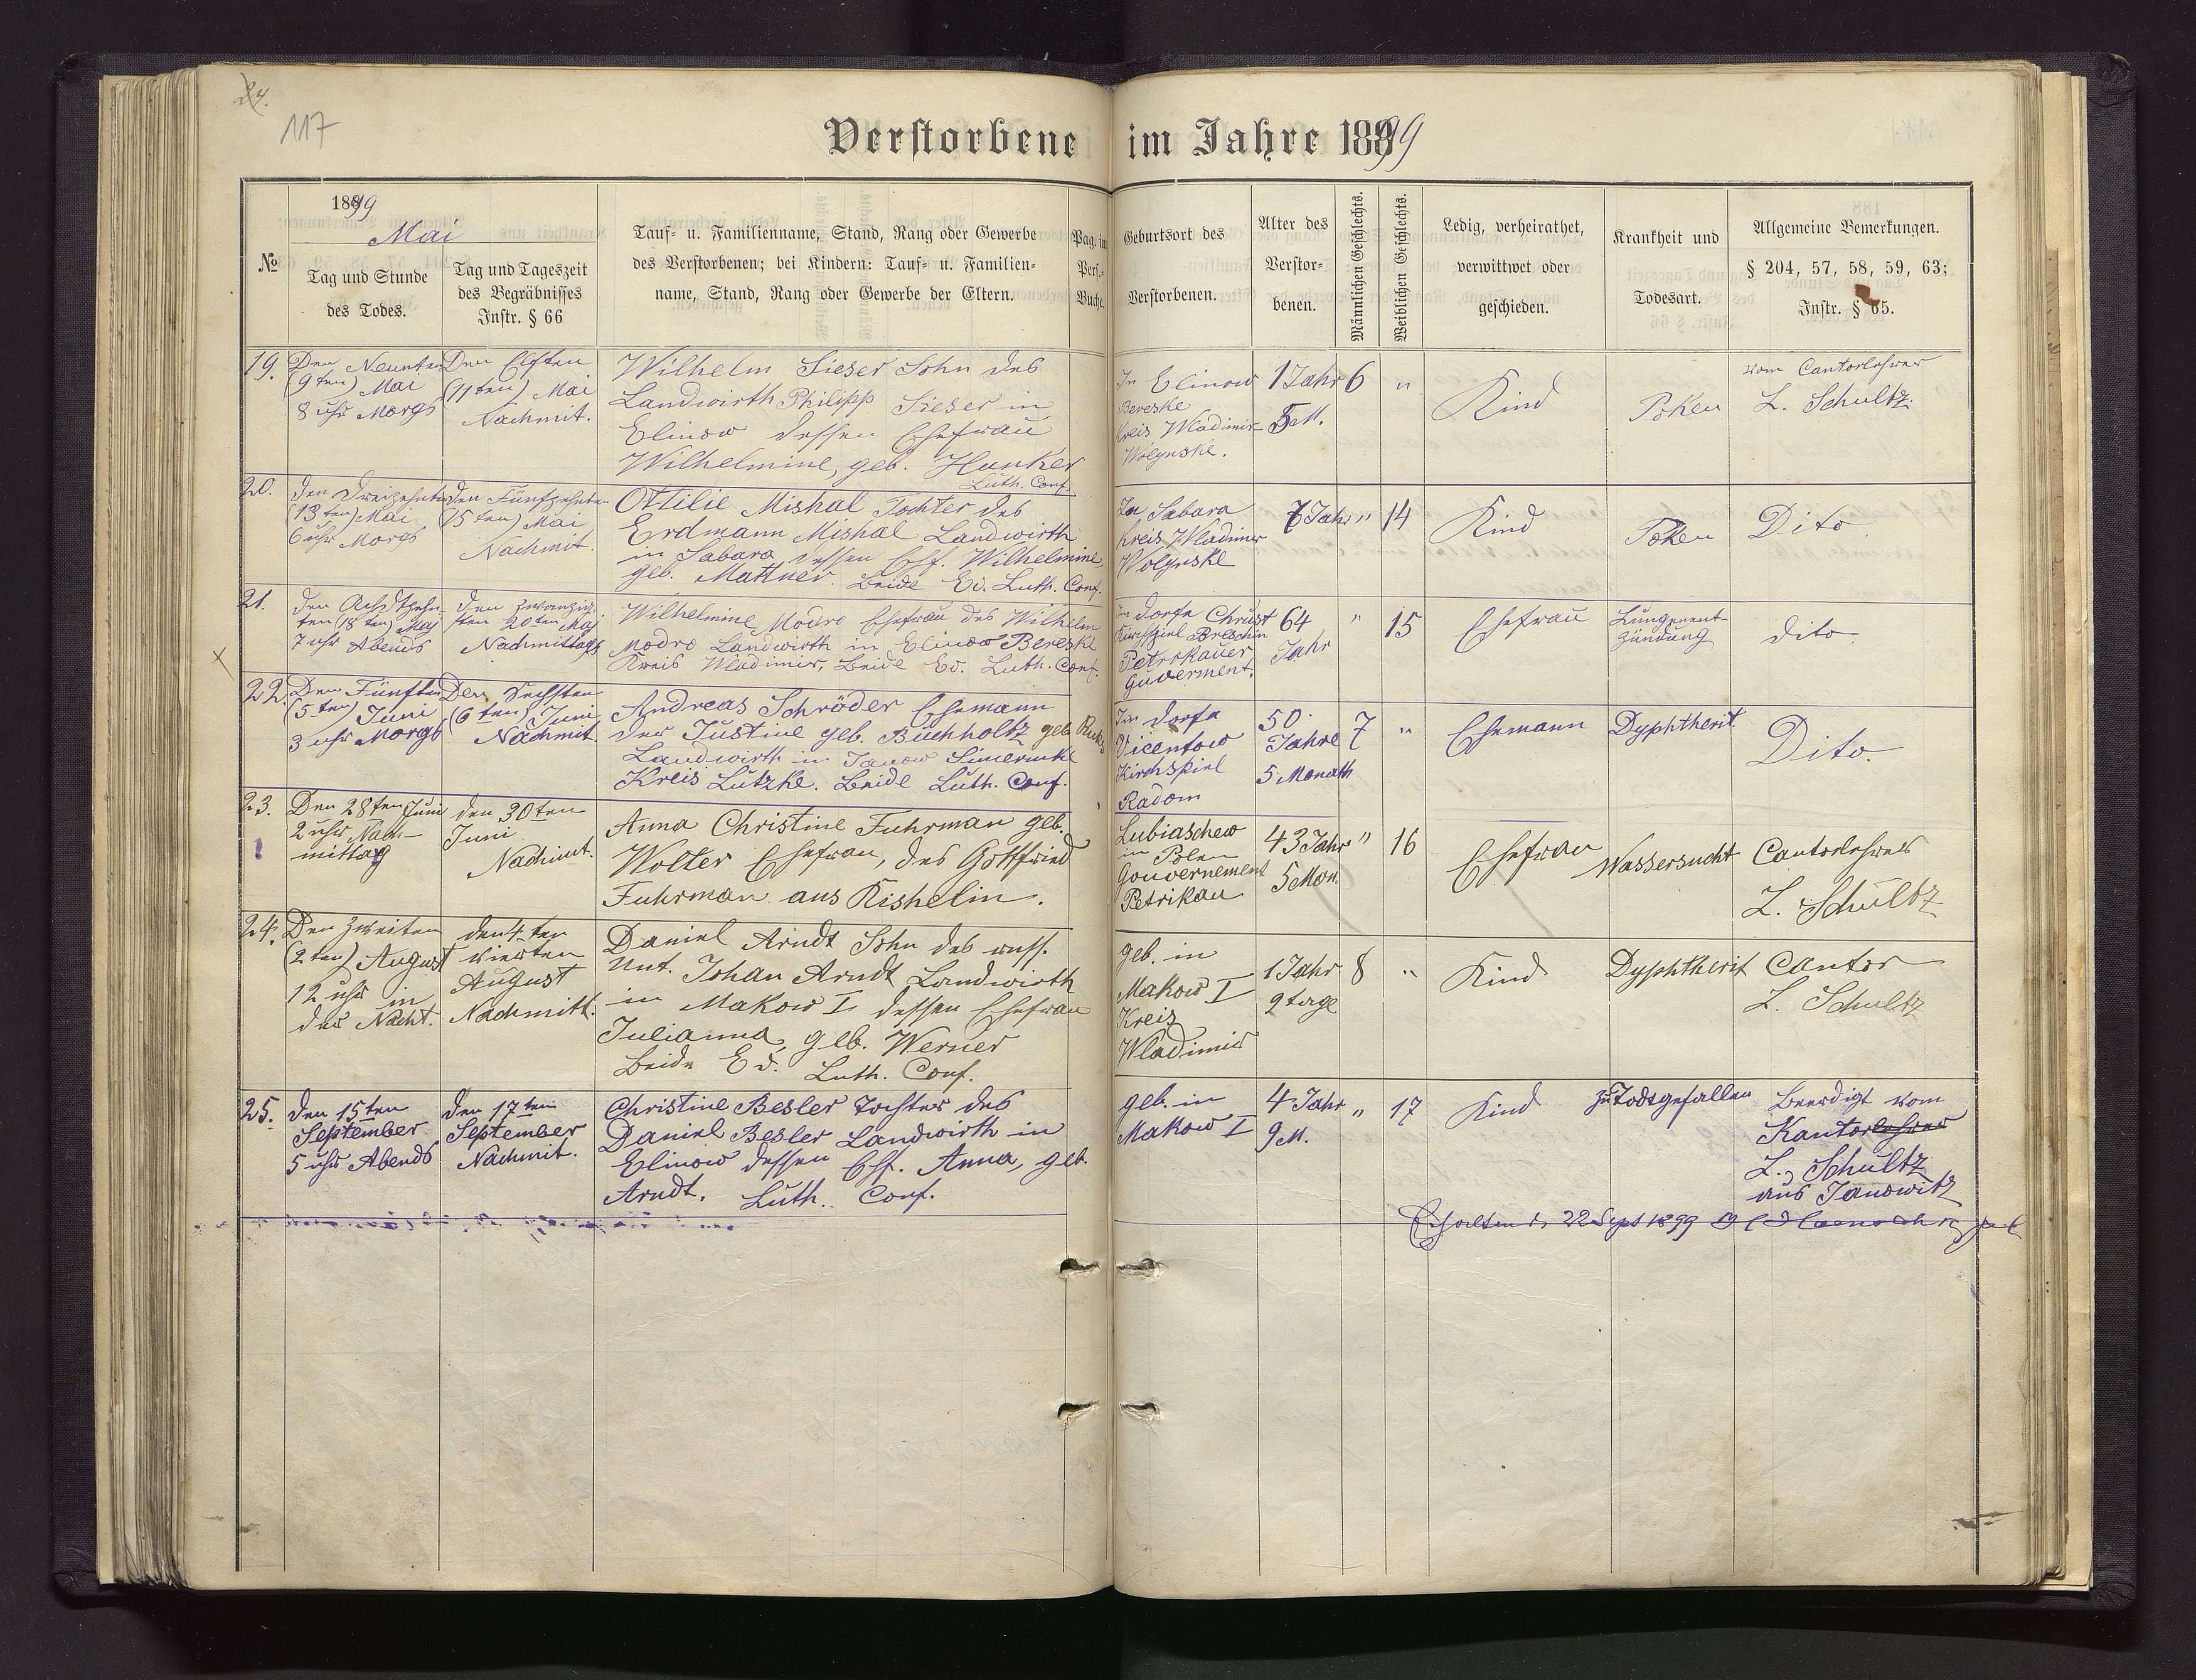 24.
117
Verstorbene im Jahre 1899
1899
Mai
№
Tag und Stunde
des Todes.
Tag und Tageszeit
des Begräbnisses
Instr. § 66
Tauf= u. Familienname, Stand, Rang oder Gewerbe
des Verstorbenen; bei Kindern: Tauf= u. Familien=
name, Stand, Rang oder Gewerbe der Eltern.
Pag. im
Pers.=
Buche.
Geburtsort des
Verstorbenen.
Alter des
Verstor=
benen.
Männlichen Geschlechts.
Weiblichen Geschlechts.
Ledig, verheirathet,
verwittwet oder
geschieden.
Krankheit und
Todesart.
Allgemeine Bemerkungen.
§ 204, 57, 58, 59, 63;
Instr. § 65.
19.
Den Neunten
(9ten) Mai
8 uhr Morgs
Den Elften
(11ten) Mai
Nachmit.
Wilhelm Sieser Sohn des
Landwirth Philipp Sieser in
Elinow dessen Ehefrau
Wilhelmine, geb. Hunker
Luth. Conf.
In Elinow
Bereske
Kreis Wladimir-
Wolynske.
1 Jahr
5 M.
6
"
Kind
Poken
vom Cantorlehrer
L. Schultz.
20.
den Dreizehnten
(13ten) Mai
6 uhr Morgs
den Fünfzehnten
(15ten) Mai
Nachmit.
Ottilie Mishal Tochter des
Erdmann Mishal Landwirth
in Sabara, dessen Ehf. Wilhelmine,
geb. Mattner. beide Ev. Luth. Conf.
In Sabara
Kreis Wladimir
Wolynske
Jahr
"
14
Kind
Poken
Dito
21.
den Achtzehn-
ten (18ten) Maj
7 uhr Abends
den zwanzig-
sten 20ten Maj
Nachmittags
Wilhelmine Modro Ehefrau des Wilhelm
Modro Landwirth in Elinow Bereske
Kreis Wladimir, beide Ev. Luth. Conf.
Im Dorfe Chrust
Kirchspiel Breschin
Petrokauer
Guverment.
64
Jahr
"
15
Ehefrau
Lungenent-
zündung
dito
22.
Den Fünften
(5ten) Juni
3 uhr Morgs
Den Sechsten
(6ten) Juni
Nachmit
Andreas Schröder Ehemann
der Justine geb. Buchholtz geb.
Landwirth in Janow
Kreis Lutzke. beide Luth. Conf.
Im Dorfe
Vicentow
Kirchspiel
Radom
50
Jahre
5 Monath
7
"
Ehemann
Dyphtherit.
Dito.
23.
Den 28ten Juni
2 uhr Nach-
mittag
den 30ten
Juni
Nachmit.
Anna Christine Fuhrman geb.
Wolter Ehefrau, des Gottfried
Fuhrman aus Kishelin.
Lubiaschew
in Polen
Gouvernement
Petrikau
43 Jahr
5 Mon.
"
16
Ehefrau
Wassersucht
Cantorlehrer
L. Schultz
24.
Den Zweiten
(2ten) August
12 uhr in
der Nacht.
den 4ten
vierten
August
Nachmitt.
Daniel Arndt Sohn des russ.
Unt. Johan Arndt Landwirth
in Makow I dessen Ehefrau
Julianna, geb. Werner
beide Ev. Luth. Conf.
geb. in
Makow I
Kreis
Wladimir
1 Jahr
2 tage
8
"
Kind
Dyphtherit
Cantor
L. Schultz
25.
den 15ten
September
5 uhr Abends
den 17ten
September
Nachmit.
Christine Besler Tochter des
Daniel Besler Landwirth in
Elinow dessen Ehf. Anna, geb.
Arndt. Luth. Conf.
geb. in
Makow I
4 Jahr
9 M.
"
17
Kind
zu Todsgefallen
Beerdigt vom
Kantorlehrer
L. Schultz
aus Janowitz
Erhalten d. 22 Sept 1899